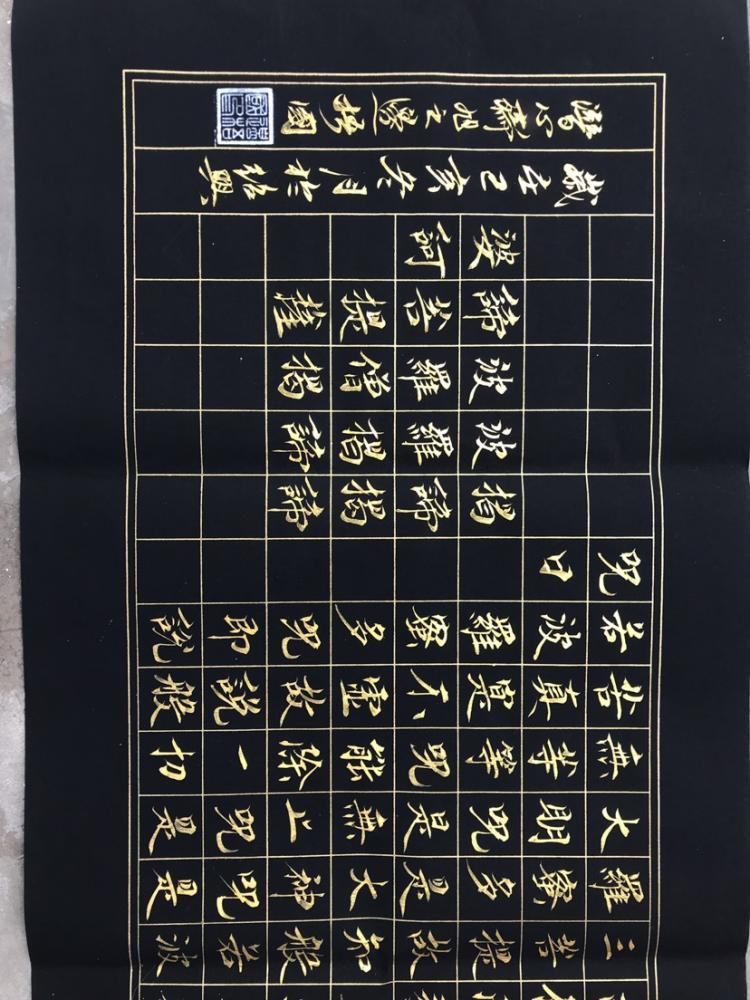 三菩提故知般若波
羅蜜多是大神咒是
大明咒是無上咒是
無等等咒能除一切
苦真實不虛故說般
若波羅蜜多咒即說
咒曰
揭諦揭諦
波羅揭諦
波羅僧揭
諦菩提薩
婆訶
歲在己亥冬月於紹興
心齋旭之